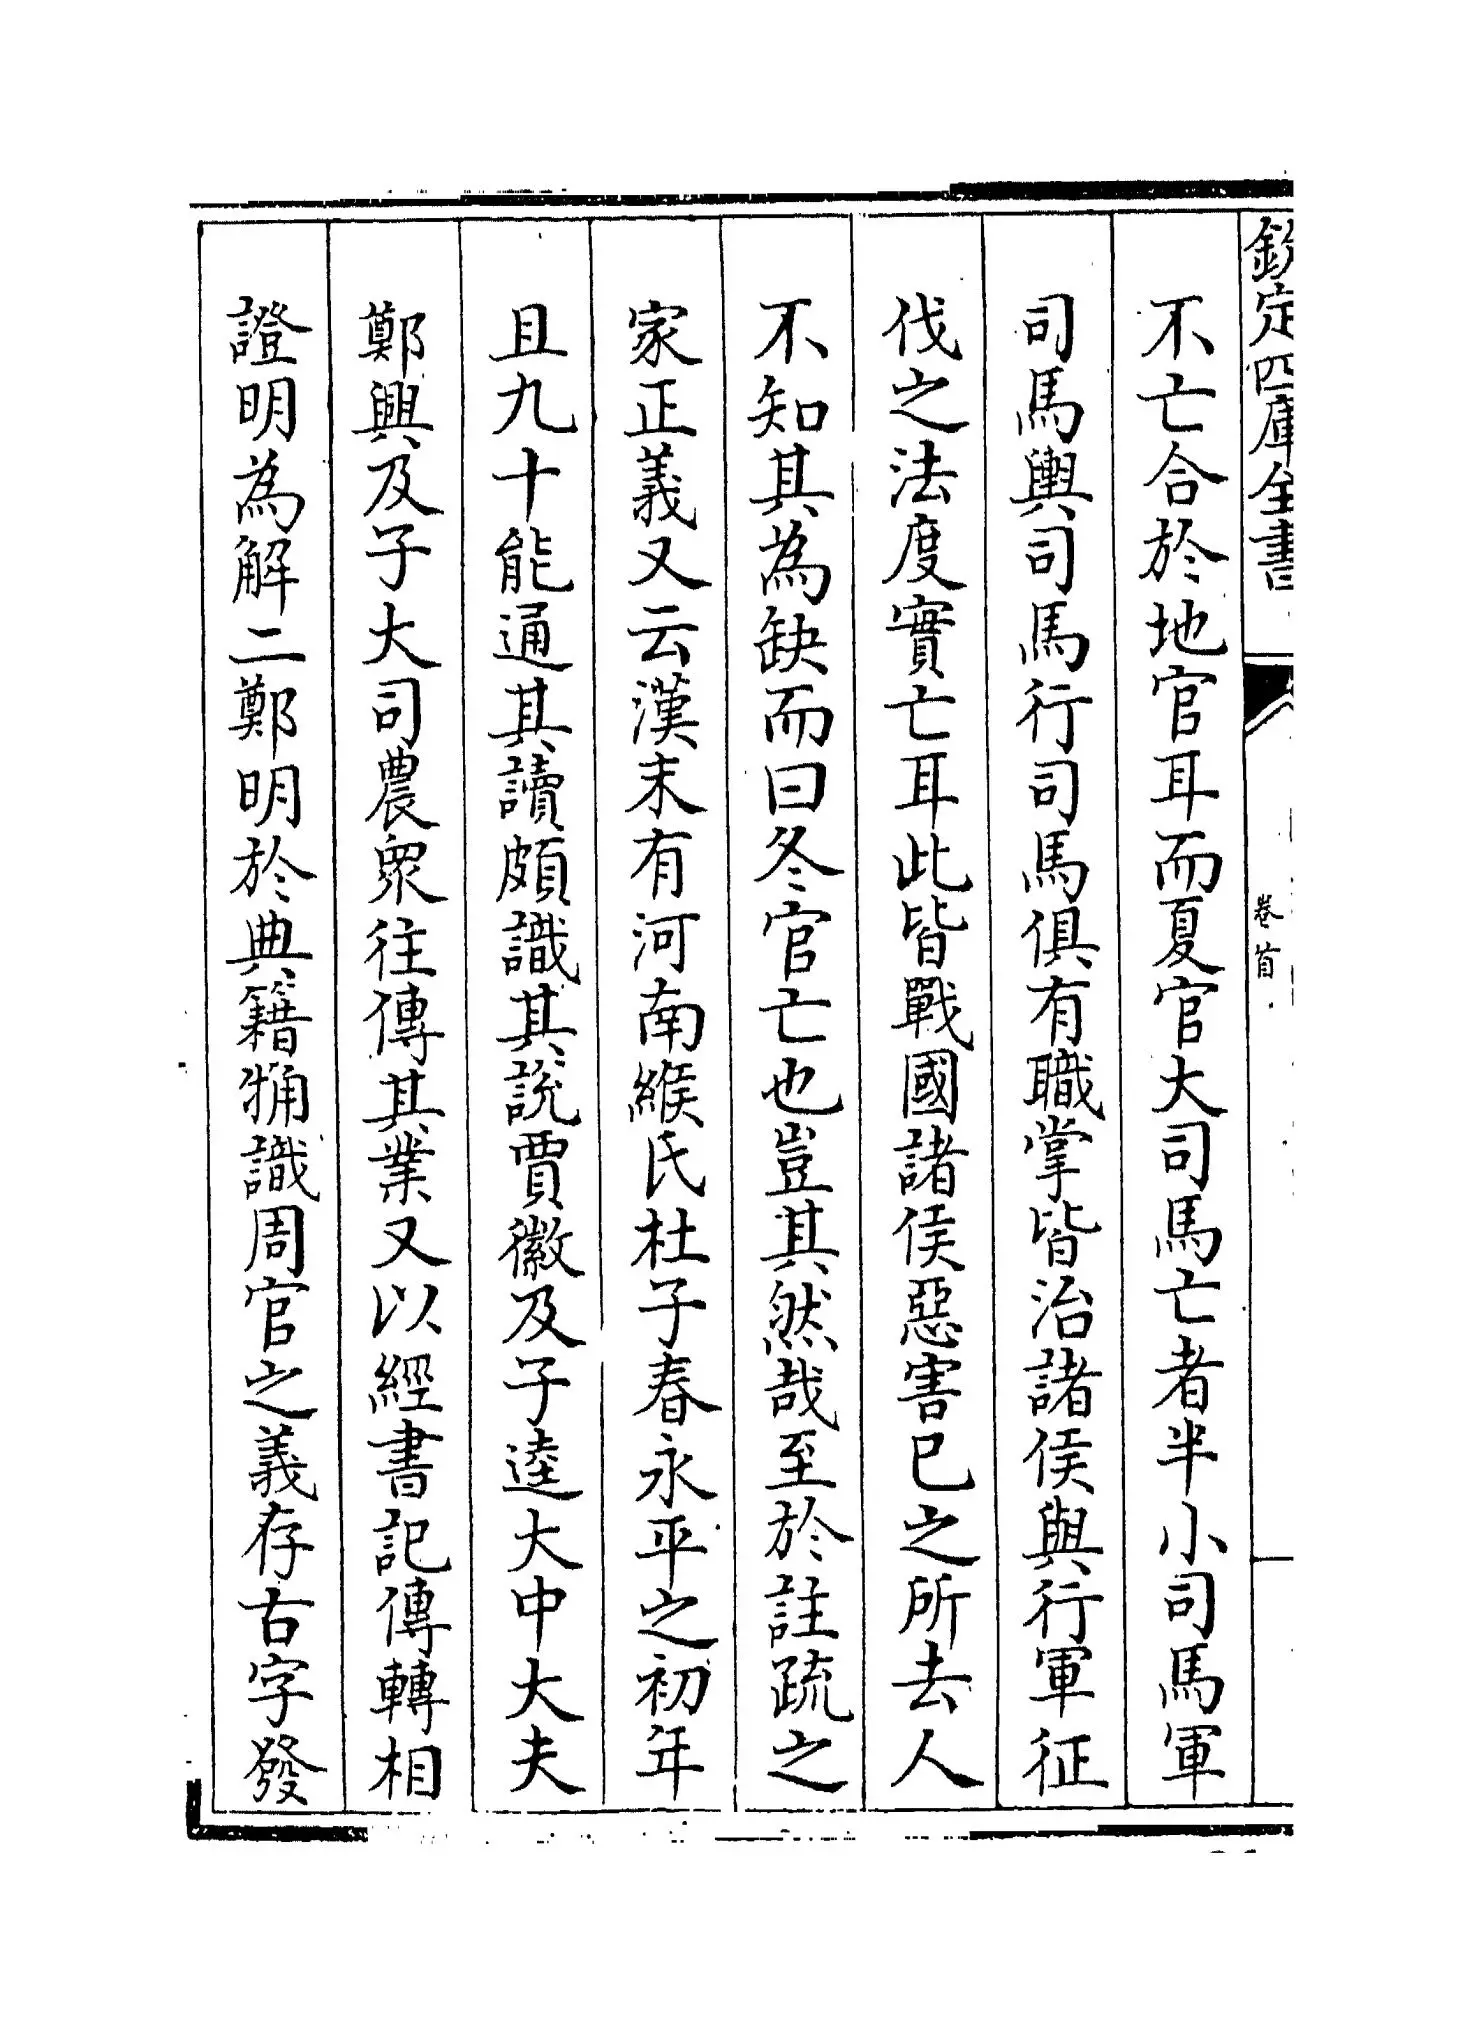 欽定四庫全書
卷首
不亡合於地官耳而夏官大司馬亡者半小司馬軍
司馬輿司馬行司馬俱有職掌皆治諸侯與行軍征
伐之法度實亡耳此皆戰國諸侯惡害已之所去人
不知其為缺而曰冬官亡也豈其然哉至於註疏之
家正義又云漢末有河南緱氏杜子春永平之初年
且九十能通其讀頗識其說賈徽及子逵大中大夫
鄭興及子大司農衆往傳其業又以經書記傳轉相
證明為解二鄭明於典籍觕識周官之義存古字發